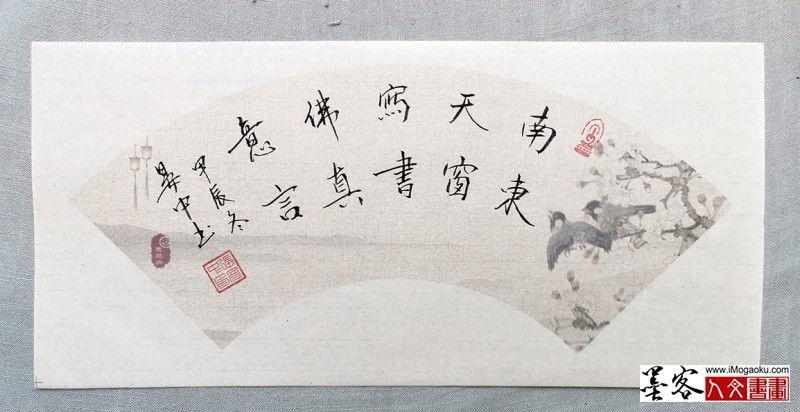 南天寫佛意
東窗書真言
甲辰冬
中书
www.iMogaoku.com
墨客人文書畫